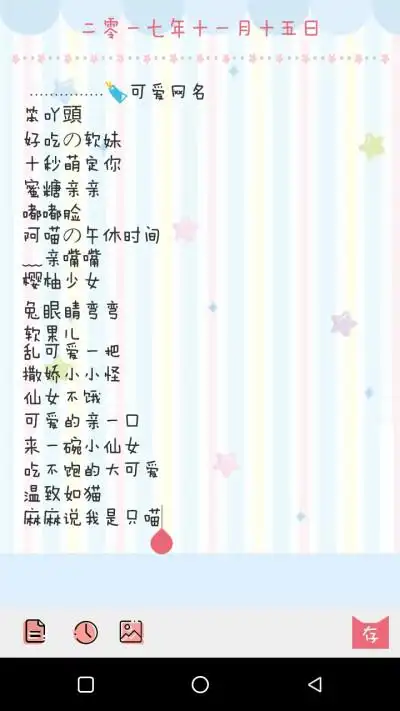 二零一七年十一月十五日
……………可爱网名
笨吖頭
好吃の软妹
十秒萌定你
蜜糖亲亲
嘟嘟脸
阿喵の午休时间
﹏亲嘴嘴
樱柚少女
兔眼睛弯弯
软果儿
乱可爱一把
撒娇小小怪
仙女不饿
可爱的亲一口
来一碗小仙女
吃不饱的大可爱
温致如猫
麻麻说我是只喵
存